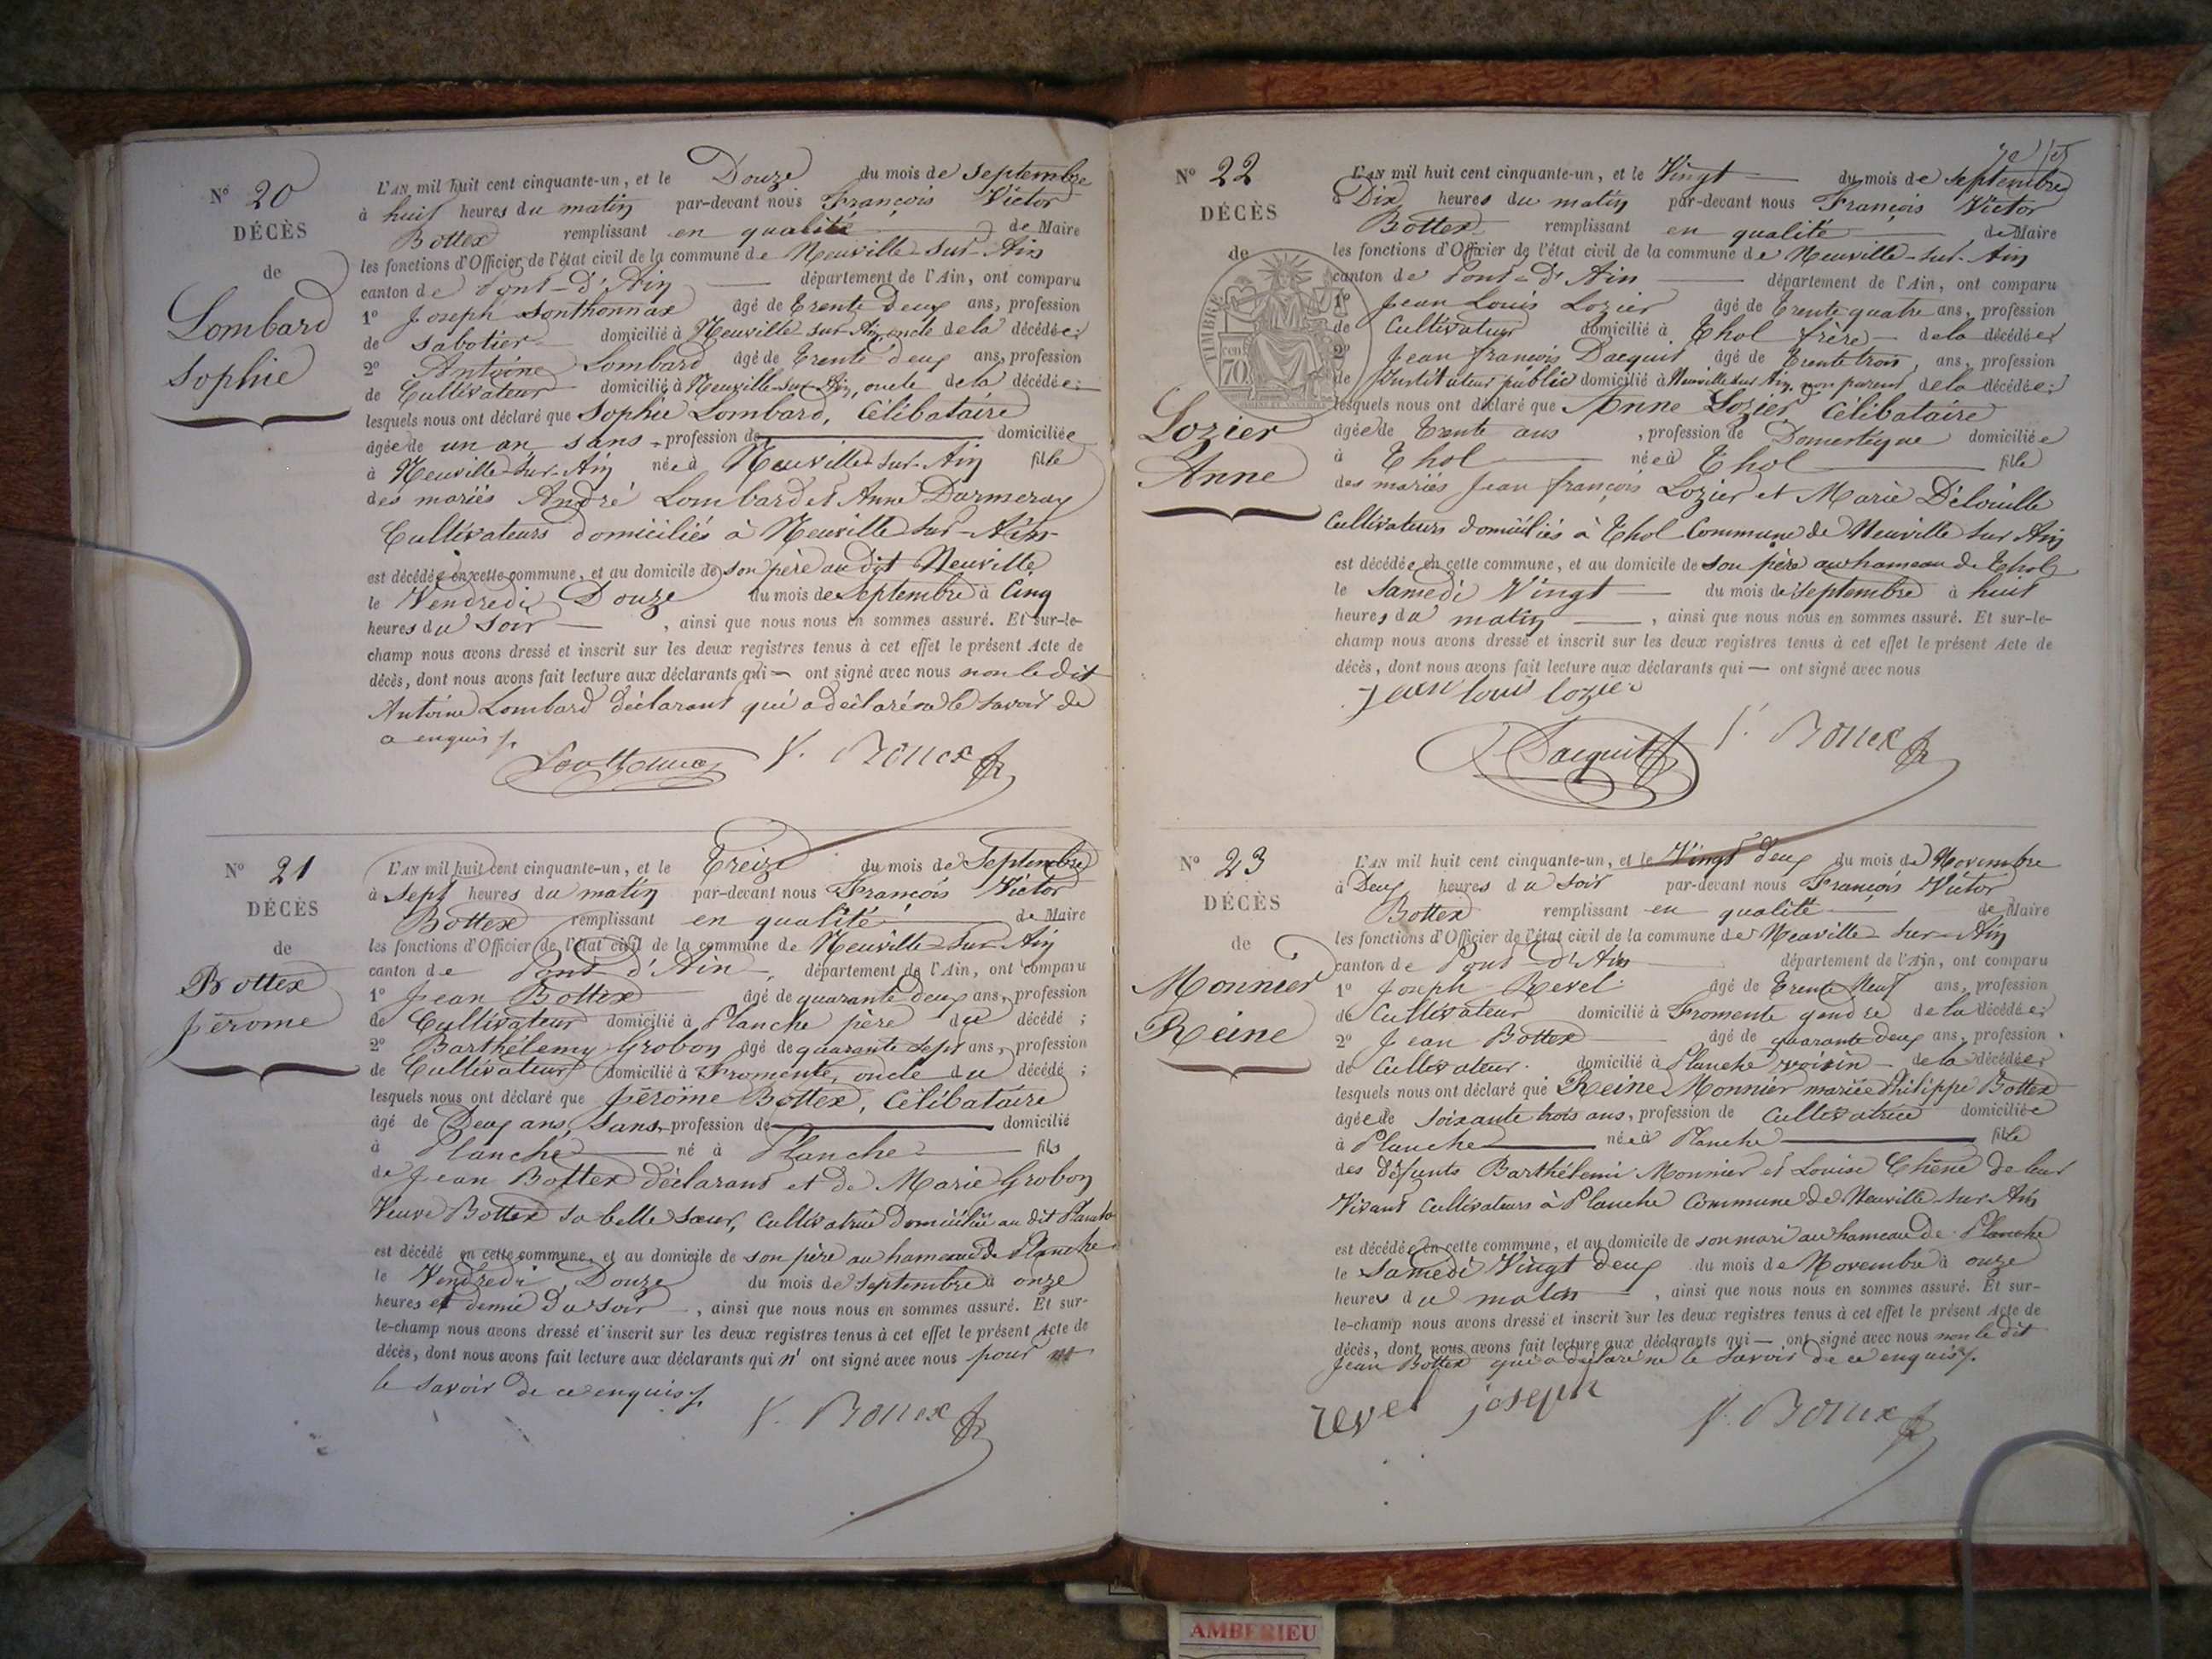 N° 20
DÉCÈS
de
Lombard
Sophie
L'AN mil huit cent cinquante-un, et le Douze du mois de Septembre
à huit heures du matin par-devant nous François Victor
Bottex remplissant en qualité de Maire
les fonctions d'Officier de l'état civil de la commune de Neuville-sur-Ain
canton de Pont-d'Ain département de l'Ain, ont comparu
1° Joseph Sonthonnax âgé de Trente Deux ans, profession
de Sabotier domicilié à Neuville-sur-Ain, oncle de la décédée;
2° Antoine Lombard âgé de Trente deux ans, profession
de Cultivateur domicilié à Neuville-sur-Ain, oncle de la décédée;
lesquels nous ont déclaré que Sophie Lombard, Célibataire
âgée de un an, sans profession de domiciliée
à Neuville-sur-Ain née à Neuville-sur-Ain fille
des mariés André Lombard et Anne Darmeray
Cultivateurs domiciliés à Neuville-sur-Ain
est décédée en cette commune, et au domicile de son père au dit Neuville
le Vendredi Douze du mois de Septembre à Cinq
heures du Soir, ainsi que nous nous en sommes assuré. Et sur-le-
champ nous avons dressé et inscrit sur les deux registres tenus à cet effet le présent Acte de
décès, dont nous avons fait lecture aux déclarants qui — ont signé avec nous non le dit
Antoine Lombard déclarant qui a déclaré ne le savoir de
ce enquis
Sonthonnax V. Bottex
N° 21
DÉCÈS
de
Bottex
Jérome
L'AN mil huit cent cinquante-un, et le Treize du mois de Septembre
à Sept heures du matin par-devant nous François Victor
Bottex remplissant en qualité de Maire
les fonctions d'Officier de l'état civil de la commune de Neuville-sur-Ain
canton de Pont d'Ain, département de l'Ain, ont comparu
1° Jean Bottex âgé de quarante deux ans, profession
de Cultivateur domicilié à Planche père du décédé;
2° Barthélemy Grobon âgé de quarante sept ans, profession
de Cultivateur domicilié à Fromente, oncle du décédé;
lesquels nous ont déclaré que Jérôme Bottex, Célibataire
âgé de Deux ans, Sans profession de domicilié
à Planche né à Planche fils
de Jean Bottex déclarant et de Marie Grobon
Veuve Bottex sa belle sœur, Cultivatrice Domiciliée au dit Planche
est décédé en cette commune, et au domicile de son père au hameau de Planche
le Vendredi Douze du mois de Septembre à onze
heures et demie du soir, ainsi que nous nous en sommes assuré. Et sur-
le-champ nous avons dressé et inscrit sur les deux registres tenus à cet effet le présent Acte de
décès, dont nous avons fait lecture aux déclarants qui n' ont signé avec nous pour ne
le savoir de ce enquis
V. Bottex
N° 22
DÉCÈS
de
Lozier
Anne
TIMBRE
70
L'AN mil huit cent cinquante-un, et le Vingt du mois de Septembre
à Dix heures du matin par-devant nous François Victor
Bottex remplissant en qualité de Maire
les fonctions d'Officier de l'état civil de la commune de Neuville-sur-Ain
canton de Pont-d'Ain département de l'Ain, ont comparu
1° Jean Louis Lozier âgé de Trente quatre ans, profession
de Cultivateur domicilié à Thol frère de la décédée
2° Jean françois Dacquit âgé de Trente trois ans, profession
de Instituteur public domicilié à Neuville sur Ain, non parent de la décédée;
lesquels nous ont déclaré que Anne Lozier Célibataire
âgée de Trente ans, profession de Domestique domiciliée
à Thol née à Thol fille
des mariés Jean françois Lozier et Marie Délouille
Cultivateurs domiciliés à Thol Commune de Neuville sur Ain
est décédée en cette commune, et au domicile de son père au hameau de Thol
le Samedi Vingt du mois de Septembre à huit
heures du matin, ainsi que nous nous en sommes assuré. Et sur-le-
champ nous avons dressé et inscrit sur les deux registres tenus à cet effet le présent Acte de
décès, dont nous avons fait lecture aux déclarants qui — ont signé avec nous
Jean louis lozier
Dacquit V. Bottex
N° 23
DÉCÈS
de
Monnier
Reine
L'AN mil huit cent cinquante-un, et le Vingt deux du mois de Novembre
à Deux heures du soir par-devant nous François Victor
Bottex remplissant en qualité de Maire
les fonctions d'Officier de l'état civil de la commune de Neuville-sur-Ain
canton de Pont-d'Ain département de l'Ain, ont comparu
1° Joseph Revel âgé de Trente Neuf ans, profession
de Cultivateur domicilié à Fromente gendre de la décédée;
2° Jean Bottex âgé de quarante deux ans, profession
de Cultivateur domicilié à Planche voisin de la décédée;
lesquels nous ont déclaré que Reine Monnier mariée Philippe Bottex
âgée de soixante trois ans, profession de Cultivatrice domiciliée
à Planche née à Planche fille
des défunts Barthélemi Monnier et Louise Chêne de leur
Vivant Cultivateurs à Planche Commune de Neuville-sur-Ain
est décédée en cette commune, et au domicile de son mari au hameau de Planche
le Samedi Vingt deux du mois de Novembre à onze
heures du matin, ainsi que nous nous en sommes assuré. Et sur-
le-champ nous avons dressé et inscrit sur les deux registres tenus à cet effet le présent Acte de
décès, dont nous avons fait lecture aux déclarants qui — ont signé avec nous non le dit
Jean Bottex qui a déclaré ne le savoir de ce enquis
revel joseph V. Bottex
AMBERIEU